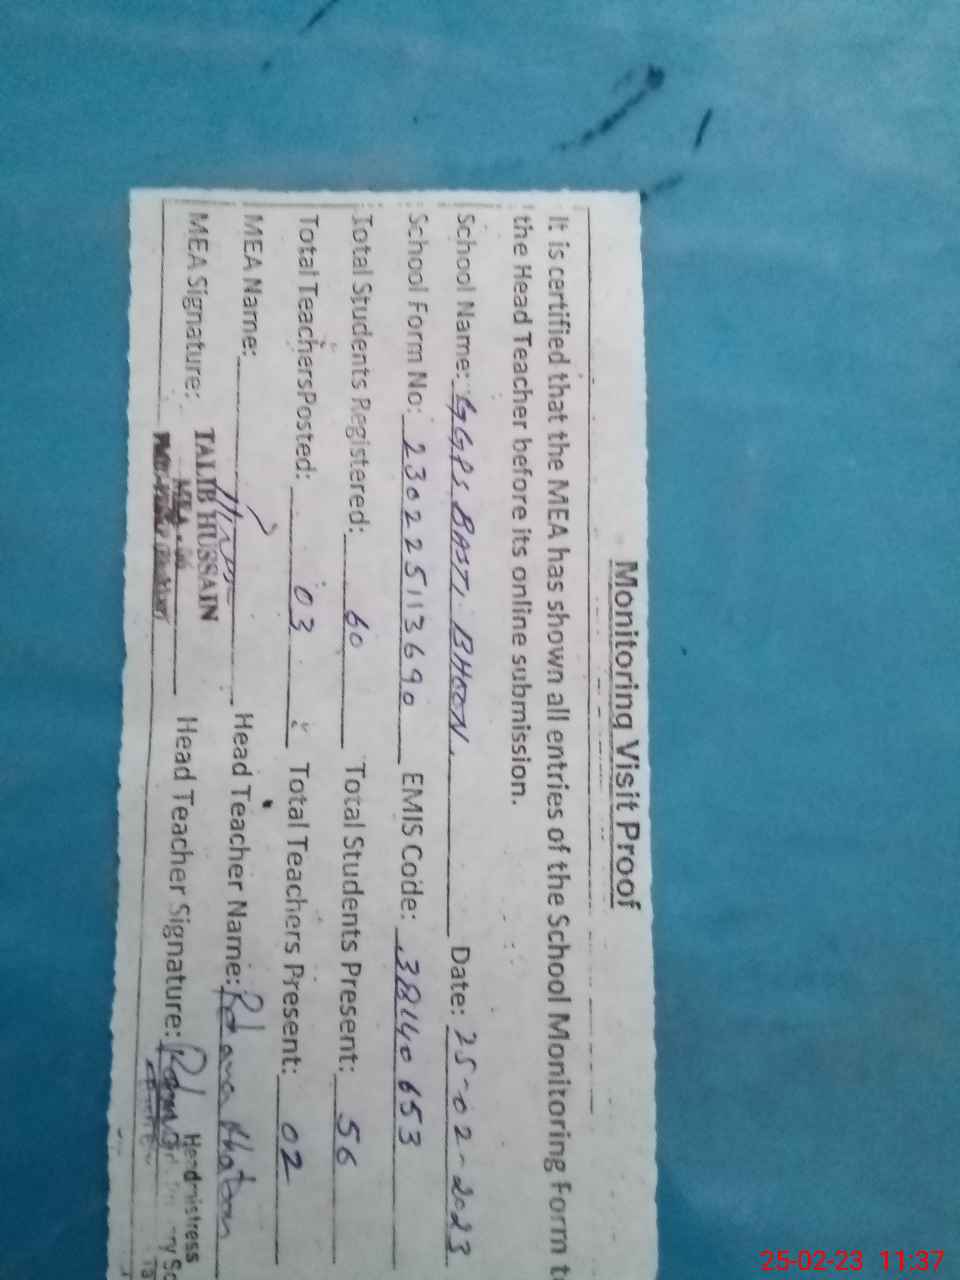 Monitoring Visit Proof
It is certified that the MEA has shown all entries of the School Monitoring Form t
the Head Teacher before its online submission.
School Name: GGPS BASTI BHOON. Date: 25-02-2023
School Form No: 23022511 3690 EMIS Code: 38140653
Total Students Registered: 60 Total Students Present: 56
Total TeachersPosted: 03 Total Teachers Present: 02
MEA Name: Head Teacher Name: Khatoon
MEA Signature: TALIB HUSSAIN Head Teacher Signature:
MEA Headmistress
25-02-23 11:37